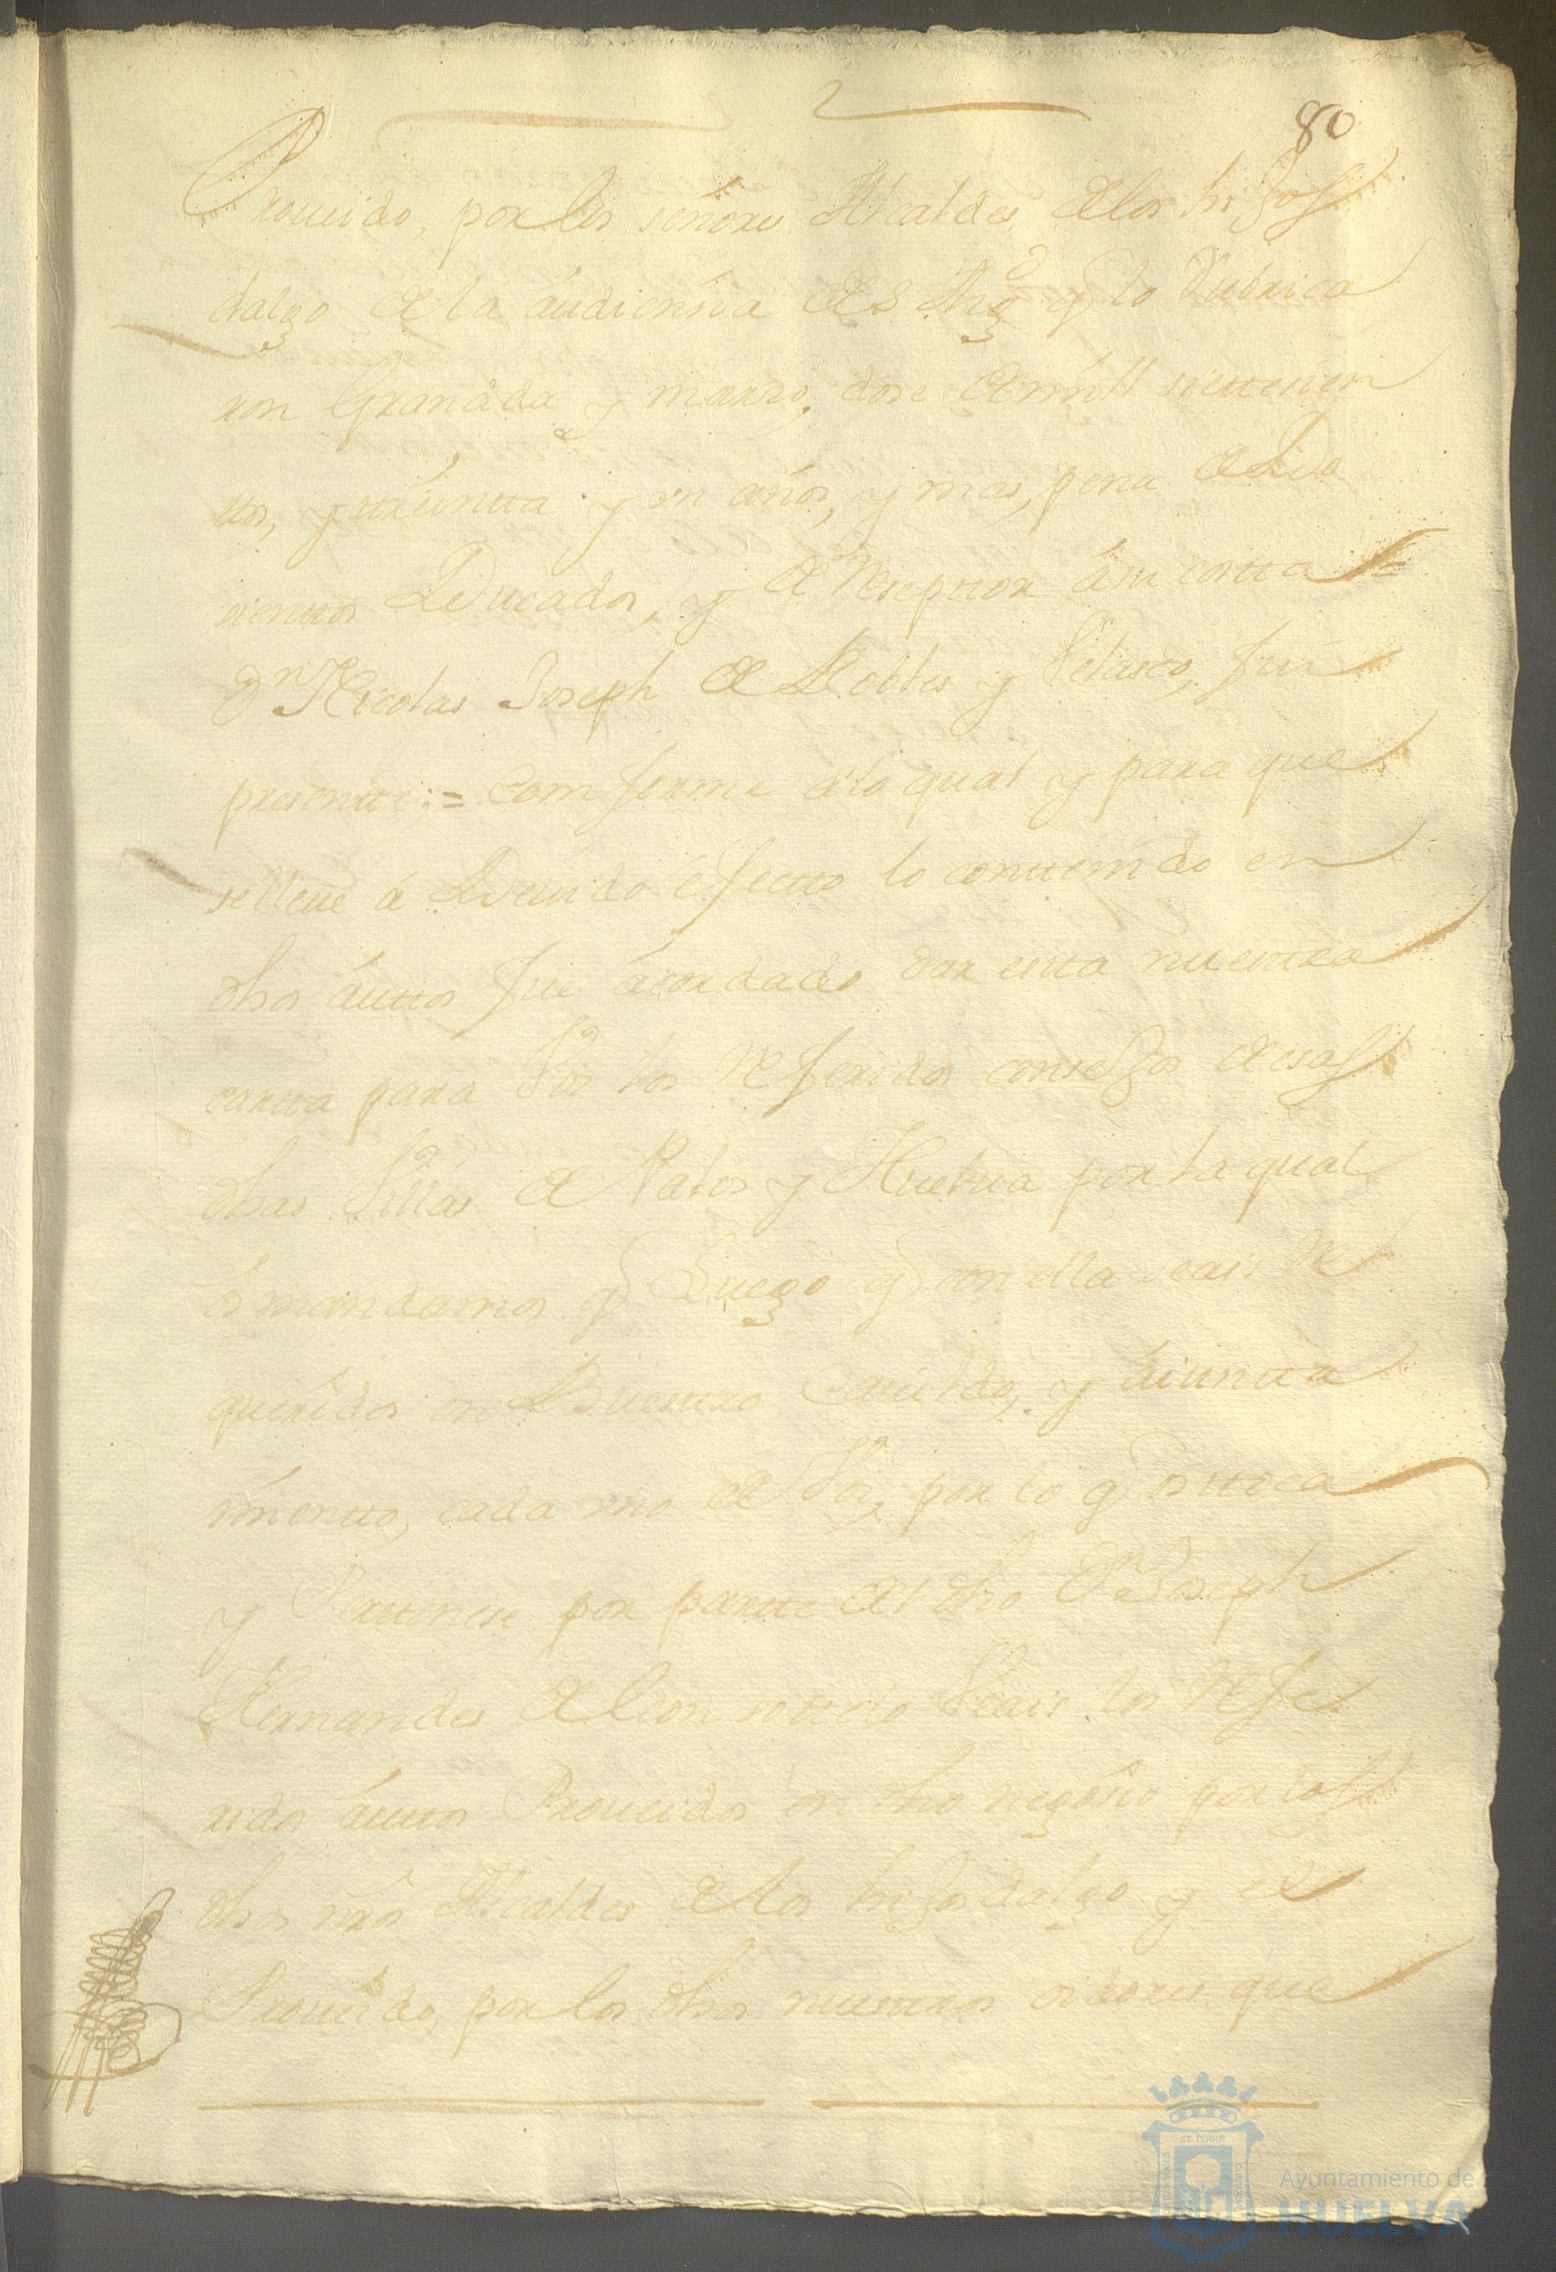 80
Proueido, por los señores Alcaldes de los hijos
dalgo de la áudiensia de S Mgd q lo Rubrica
ron Granáda y marzo, dose de mill settesien
ttos, y ttreintta y vn años, y mas, pena de Do
sientos Ducados, y de Reseptor á su costta =
Dn Nicolas Joseph de Robles y Velasco, fui
presentte; = Comforme á lo qual y para que
se lleue á Deuido éfectto lo conttenido en
dhos áuttos fue ácordado dar estta nuesttra
cartta para Vos los Referidos consejos de esas
dhas Villas de Palos y Huelua por la qual
ós mandamos q Luego q con ella seais Re
queridos en Buesttro Cauildo, y áiuntta
mientto, cada vno de Vos, por lo q os ttoca
y Perttenese por partte del dho Dn Joseph
Hernandes de Leon Veais los Refe
ridos áuttos Proueidos en dho negósio por los
dhos nros Alcaldes de los hijosdalgo y el
Proueido, por los dhos nuesttros oidores que
Ayuntamiento de
HUELVA